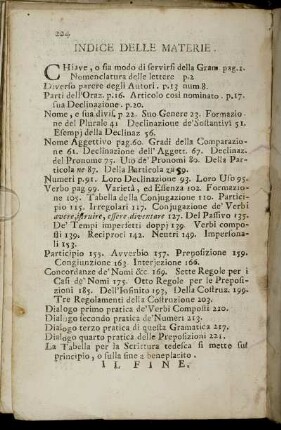 224
INDICE DELLE MATERIE.
CHiave, o sia modo di servirsi della Gram pag.2.
Nomenclatura delle lettere p.2
Diverso parere degli Autori. p.13 num.8.
Parti dell'Oraz. p.16. Articolo così nominato. p.17.
sua Declinazione. p.20.
Nome, e sua divis. p 22. Suo Genere 23. Formazio-
ne del Plurale 41 Declinazione de'Sostantivi 51.
Esempj della Declinaz 56.
Nome Aggettivo pag.60. Gradi della Comparazio-
ne 61. Declinazione dell'Agget. 67. Declinaz.
del Pronome 75. Uso de' Pronomi 80. Della Par-
ticola ne 87. Della Particola zu 89.
Numeri p.91. Loro Declinazione 93. Loro Uso 95.
Verbo pag 99. Varietà, ed Essenza 102. Formazio-
ne 105. Tabella della Conjugazione 110. Partici-
pio 115. Irregolari 117. Conjugazione de' Verbi
avere, essere, diventare 127. Del Passivo 135.
De' Tempi imperfetti doppj 139. Verbi compo-
sti 139. Reciproci 142. Neutri 149. Impersona-
li 153.
Participio 155. Avverbio 157. Preposizione 159.
Congiunzione 163 Interjezione 166.
Concordanze de' Nomi &c. 169. Sette Regole per i
Casi de' Nomi 175. Otto Regole per le Preposi-
zioni 185. Dell'Infinito 197, Della Costruz. 199.
Tre Regolamenti della Costruzione 203.
Dialogo primo pratica de'Verbi Composti 210.
Dialogo secondo pratica de'Numeri 213.
Dialogo terzo pratica di questa Gramatica 217.
Dialogo quarto pratica delle Preposizioni 221.
La Tabella per la Scrittura tedesca si mette sul
principio, o sulla fine a beneplacito.
IL FINE.